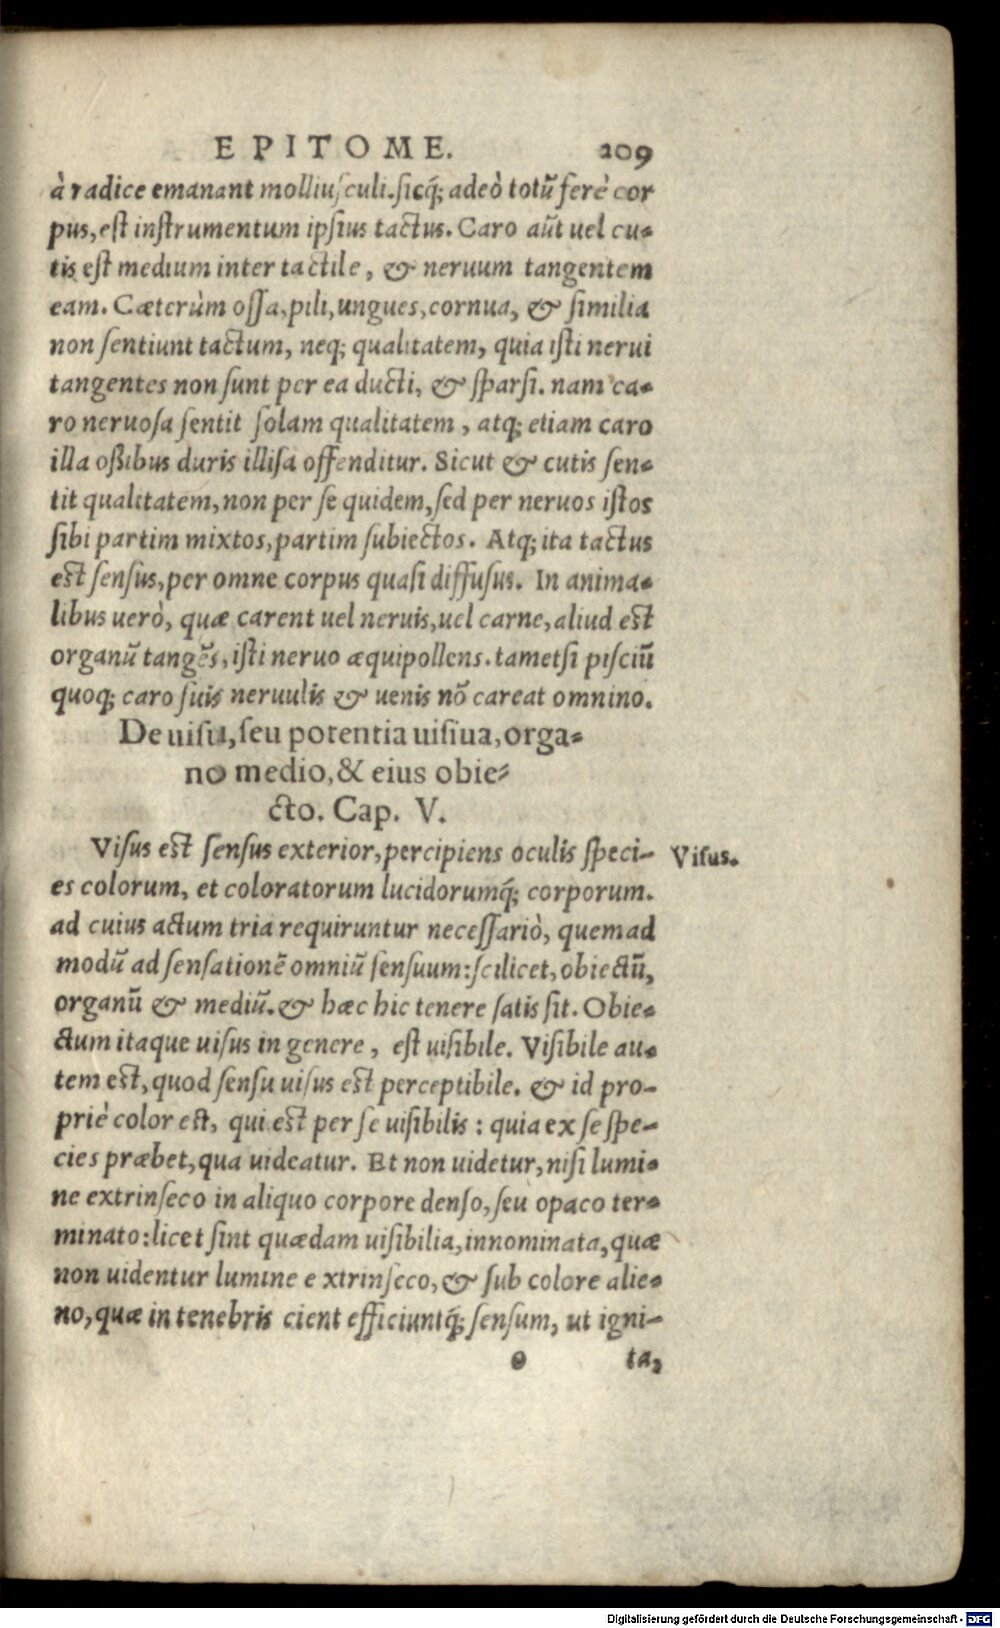 EPITOME. 209
à radice emanant molliusculi. sicq́; adeò totũ ferè cor
pus, est instrumentum ipsius tactus. Caro aũt uel cu-
tis est medium inter tactile, & neruum tangentem
eam. Cæterùm ossa, pili, ungues, cornua, & similia
non sentiunt tactum, neq; qualitatem, quia isti nerui
tangentes non sunt per ea ducti, & sparsi. nam ca-
ro neruosa sentit solam qualitatem, atq; etiam caro
illa oßibus duris illisa offenditur. Sicut & cutis sen-
tit qualitatem, non per se quidem, sed per neruos istos
sibi partim mixtos, partim subiectos. Atq; ita tactus
est sensus, per omne corpus quasi diffusus. In anima-
libus uerò, quæ carent uel neruis, uel carne, aliud est
organũ tangẽs, isti neruo æquipollens. tametsi pisciũ
quoq; caro suis neruulis & uenis nõ careat omnino.
De uisu, seu potentia uisiua, orga-
no medio, & eius obie-
cto. Cap. V.
Visus est sensus exterior, percipiens oculis speci- Visus.
es colorum, et coloratorum lucidorumq́; corporum.
ad cuius actum tria requiruntur necessariò, quemad
modũ ad sensationẽ omniũ sensuum: scilicet, obiectũ,
organũ & mediũ. & hæc hic tenere satis sit. Obie-
ctum itaque uisus in genere, est uisibile. Visibile au-
tem est, quod sensu uisus est perceptibile. & id pro-
priè color est, qui est per se uisibilis: quia ex se spe-
cies præbet, qua uideatur. Et non uidetur, nisi lumi-
ne extrinseco in aliquo corpore denso, seu opaco ter-
minato: licet sint quædam uisibilia, innominata, quæ
non uidentur lumine extrinseco, & sub colore alie-
no, quæ in tenebris cient efficiuntq́; sensum, ut igni-
o ta,
Digitalisierung gefördert durch die Deutsche Forschungsgemeinschaft - DFG